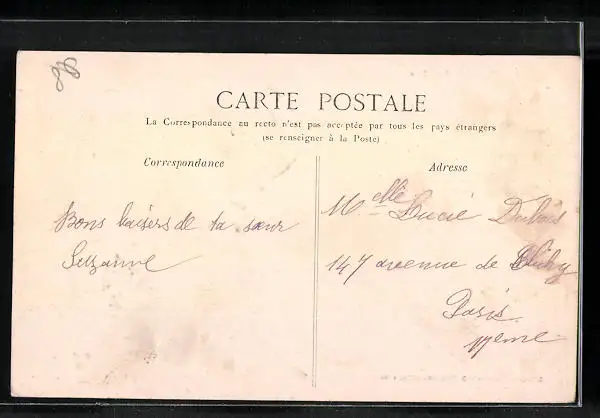 98
CARTE POSTALE
La Correspondance au recto n'est pas acceptée par tous les pays étrangers
(se renseigner à la Poste)
Correspondance
Adresse
Bons baisers de ta sœur
Suzanne
Melle Lucie Dubois
147 avenue de Clichy
Paris
17eme